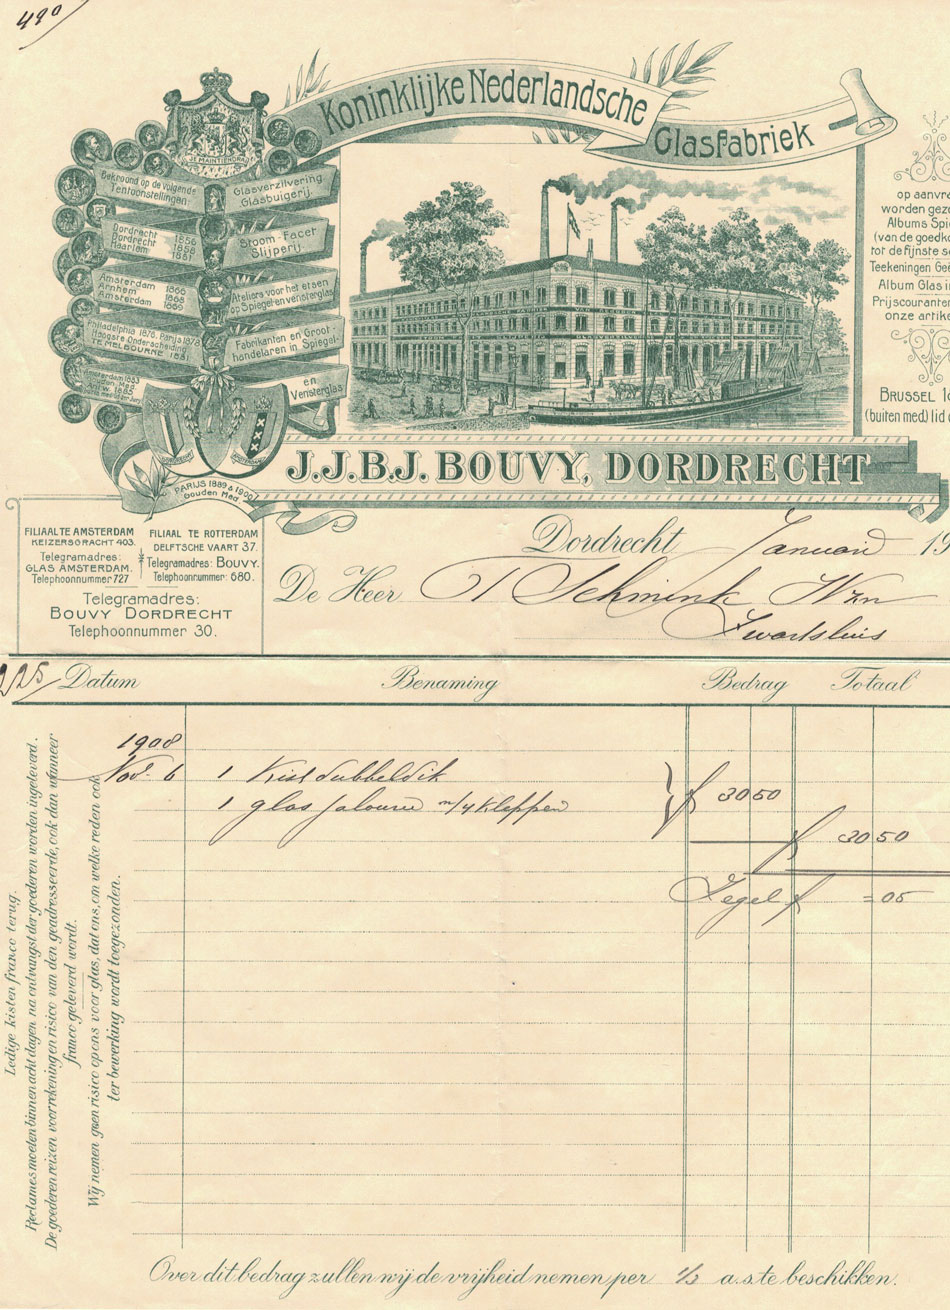 490
Koninklijke Nederlandsche
Glasfabriek
JE MAINTIENDRAI
Bekroond op de volgende
Tentoonstellingen:
Dordrecht 1856
Dordrecht 1858
Haarlem 1861
Amsterdam 1866
Arnhem 1868
Amsterdam 1869
Philadelphia 1876. Parijs 1878
Hoogste Onderscheiding
TE MELBOURNE 1881
Amsterdam 1883
Gouden Med.
Antw. 1885
Glasverzilvering
Glasbuigerij.
Stoom-Facet
Slijperij.
Ateliers voor het etsen
op Spiegel- en vensterglas
Fabrikanten en Groot-
handelaren in Spiegel
en
Vensterglas
PARIJS 1889 & 1900
Gouden Med.
op aanvra
worden geza
Albums Spie
(van de goedko
tot de fijnste so
Teekeningen Gee
Album Glas in
Prijscouranten
onze artike
BRUSSEL 18
(buiten med) lid d
J.J.B.J. BOUVY, DORDRECHT
FILIAAL TE AMSTERDAM
KEIZERSGRACHT 403.
Telegramadres:
GLAS AMSTERDAM.
Telephoonnummer 727
FILIAAL TE ROTTERDAM
DELFTSCHE VAART 37.
Telegramadres: BOUVY.
Telephoonnummer: 680.
Telegramadres:
BOUVY DORDRECHT
Telephoonnummer 30.
Dordrecht Januari 19
De Heer Schmink Wzn
Zwartsluis
225
Datum Benaming Bedrag Totaal
1908
Nov. 6 1 Kist dubbeldik
1 glas jalousie m/4 kleppen f 30 50
f 30 50
Zegel f = 05
Ledige kisten franco terug.
Reclames moeten binnen acht dagen na ontvangst der goederen worden ingeleverd.
De goederen reizen voor rekening en risico van den geadresseerde, ook dan wanneer
franco geleverd wordt.
Wij nemen geen risico op ons voor glas, dat ons, om welke reden ook
ter bewerking wordt toegezonden.
Over dit bedrag zullen wij de vrijheid nemen per 1/2 a.s. te beschikken.